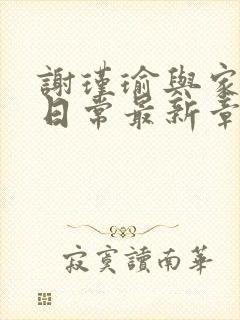 謝瑾瑜與家
日常最新章
寂寞讀南華